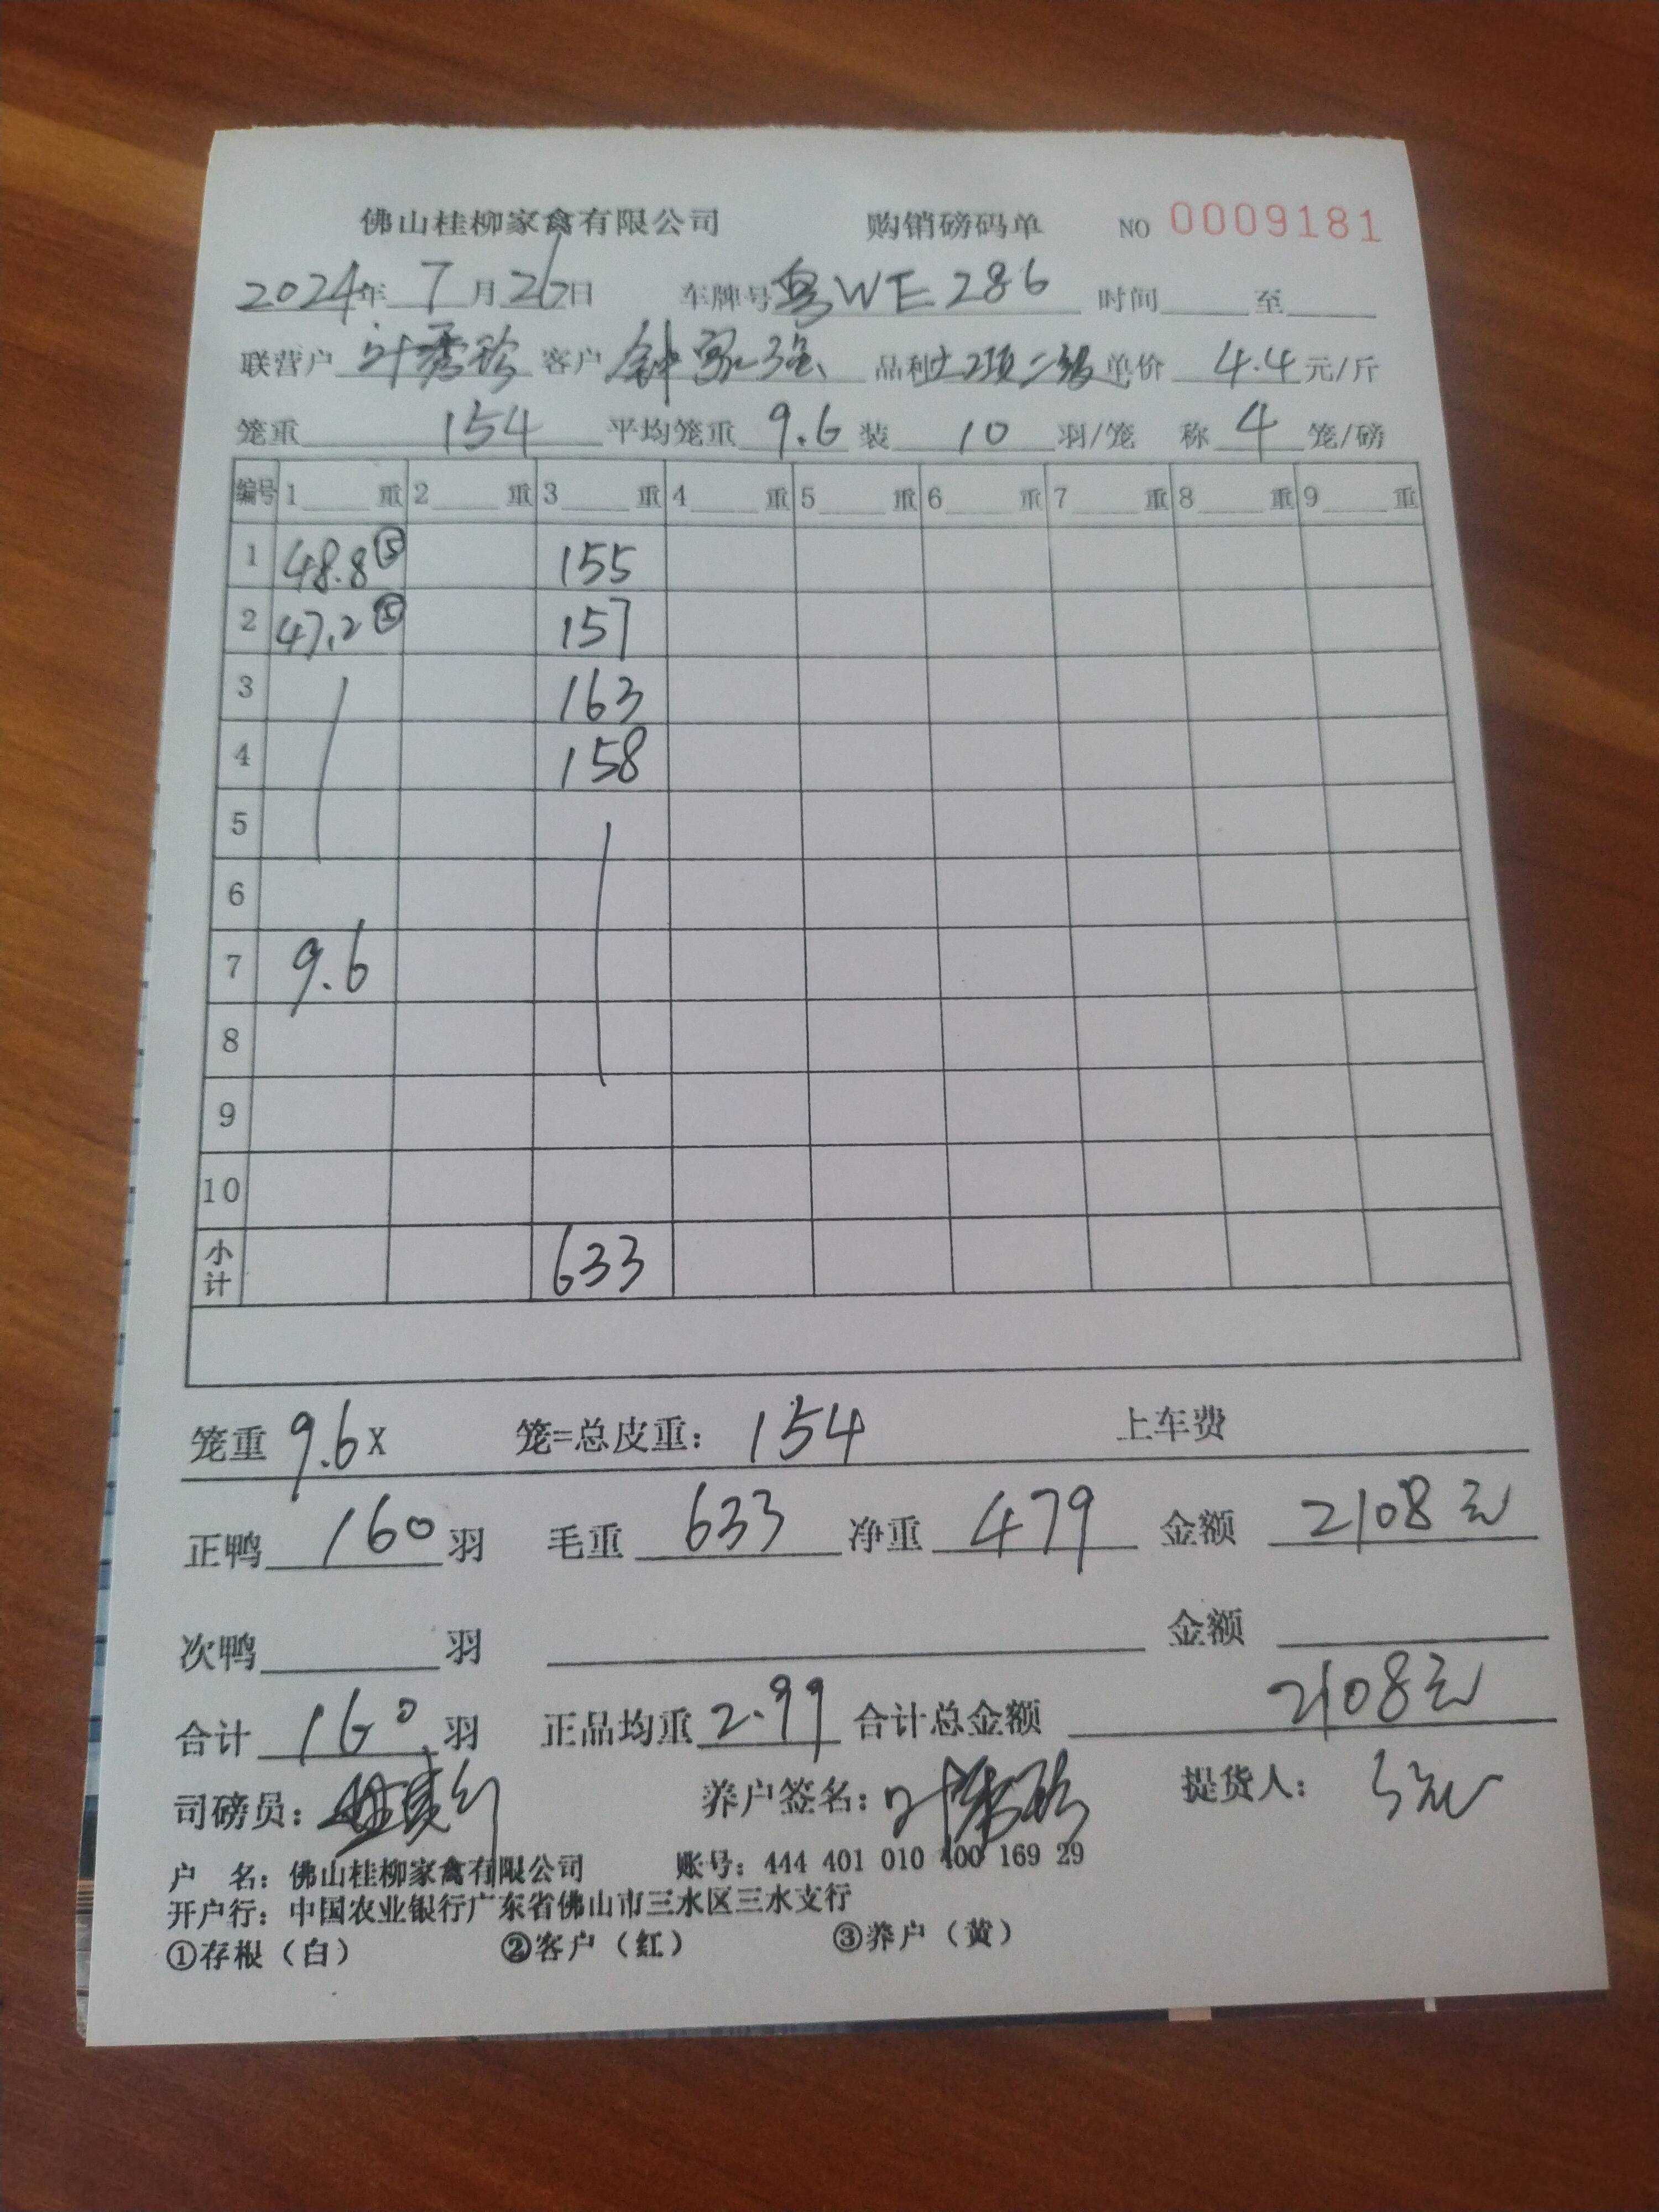 佛山桂柳家禽有限公司 购销磅码单 NO 0009181
2024年 7 月 26 日 车牌号 粤WE286 时间 至
联营户 叶秀珍 客户 钟家强 品种 二级 单价 4.4 元/斤
笼重 154 平均笼重 9.6 装 10 羽/笼 称 4 笼/磅
编号 1 重 2 重 3 重 4 重 5 重 6 重 7 重 8 重 9 重
1 48.8⑤ 155
2 47.2⑤ 157
3 163
4 158
5
6
7 9.6
8
9
10
小计 633
笼重 9.6 X 笼=总皮重: 154 上车费
正鸭 160 羽 毛重 633 净重 479 金额 2108元
次鸭 羽 金额
合计 160 羽 正品均重 2.99 合计总金额 2108元
司磅员: 养户签名: 叶秀珍 提货人:
户 名: 佛山桂柳家禽有限公司 账号: 444 401 010 400 169 29
开户行: 中国农业银行广东省佛山市三水区三水支行
①存根(白) ②客户(红) ③养户(黄)